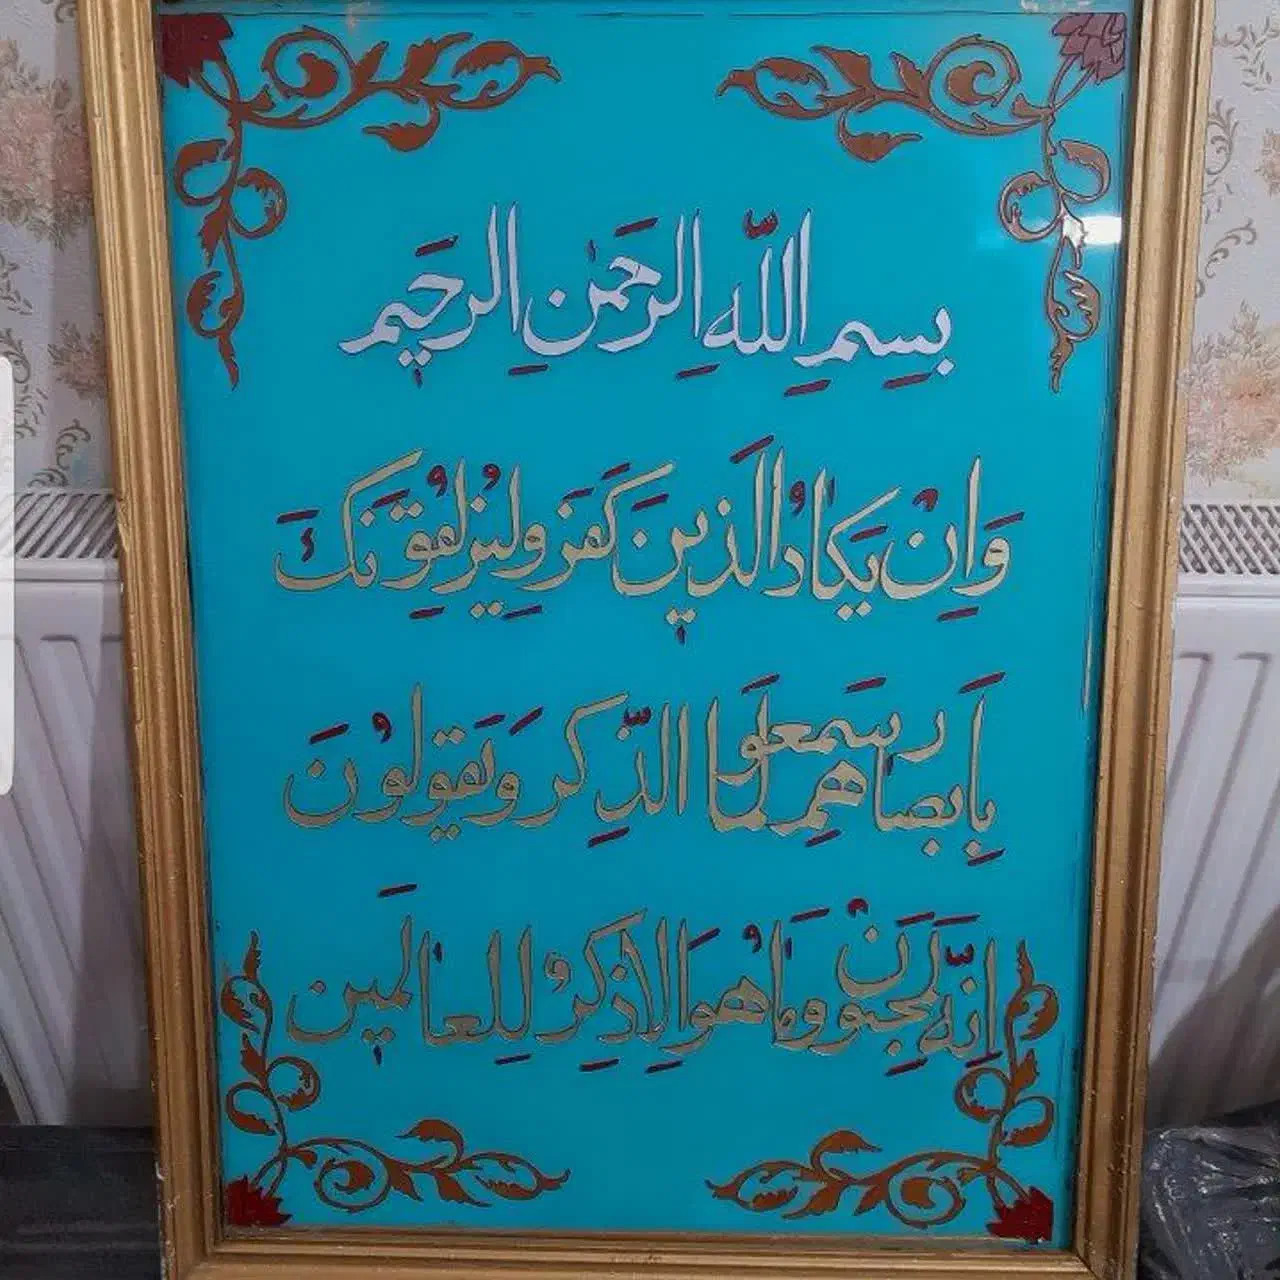 بِسِمِ اللّهِ الرَحَمٰنِ الرحَيٖم
وَاِنْ يَكٰادُ الَذينَ كَفَرَو لیُزِلقُوِنَكَ
بِاَبصٰارهِم لَمٰا سَمعوا الذِّكر وَ يَقَولوُنَ
اِنّهَ لَمَجنِوُنَ ومٰا هُوَ اِلا ذِكرُ لِلعٰالَميٖن